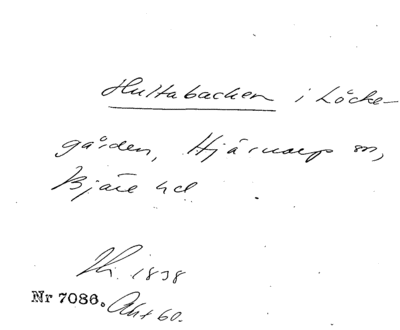 Hultabacken i Löcke-
gården, Hjärnarp sn,
Bjäre hd
1898
Nr 7086. Akt 60.